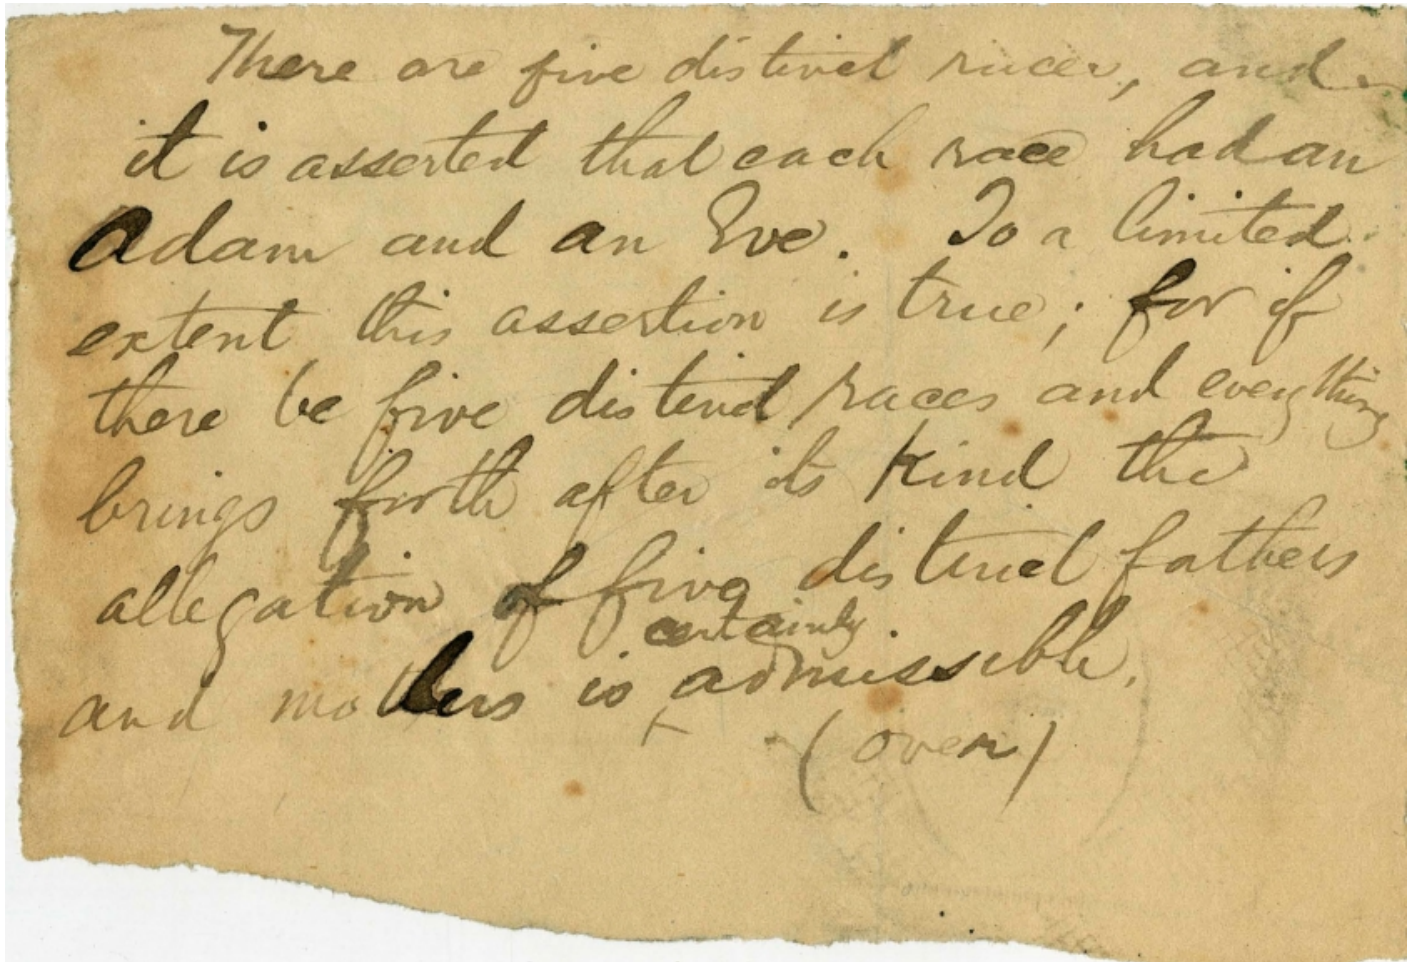 There are five distinct races, and
it is asserted that each race had an
Adam and an Eve. To a limited
extent this assertion is true; for if
there be five distinct races and everything
brings forth after its kind the
allegation of five distinct fathers
certainly
and mothers is ‸ admissible.
(over)